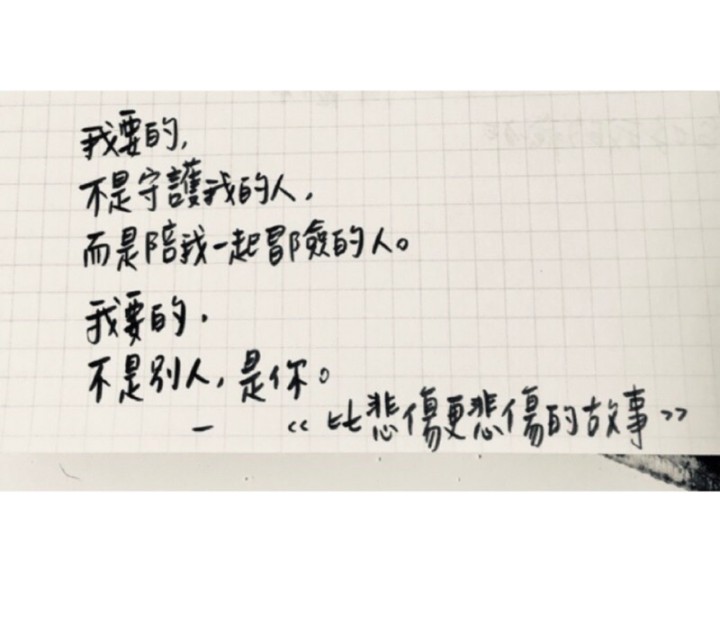 我要的,
不是守護我的人,
而是陪我一起冒險的人。
我要的,
不是別人,是你。
— 《比悲傷更悲傷的故事》